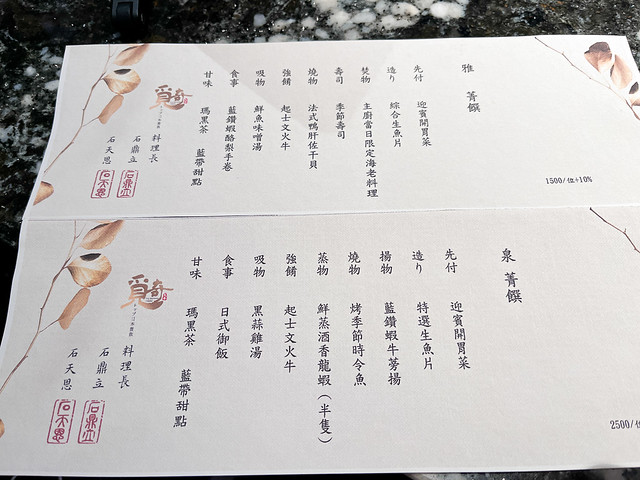 雅 菁饌
先付 迎賓開胃菜
造り 綜合生魚片
焚物 主廚當日限定海老料理
壽司 季節壽司
燒物 法式鴨肝佐干貝
強餚 起士文火牛
吸物 鮮魚味噌湯
食事 藍鑽蝦酪梨手卷
甘味 瑪黑茶 藍帶甜點
料理長
石鼎立
石天恩
覓奇
1500/位+10%
泉 菁饌
先付 迎賓開胃菜
造り 特選生魚片
揚物 藍鑽蝦牛蒡揚
燒物 烤季節時令魚
蒸物 鮮蒸酒香龍蝦(半隻)
強餚 起士文火牛
吸物 黑蒜雞湯
食事 日式御飯
甘味 瑪黑茶 藍帶甜點
料理長
石鼎立
石天恩
覓奇
2500/